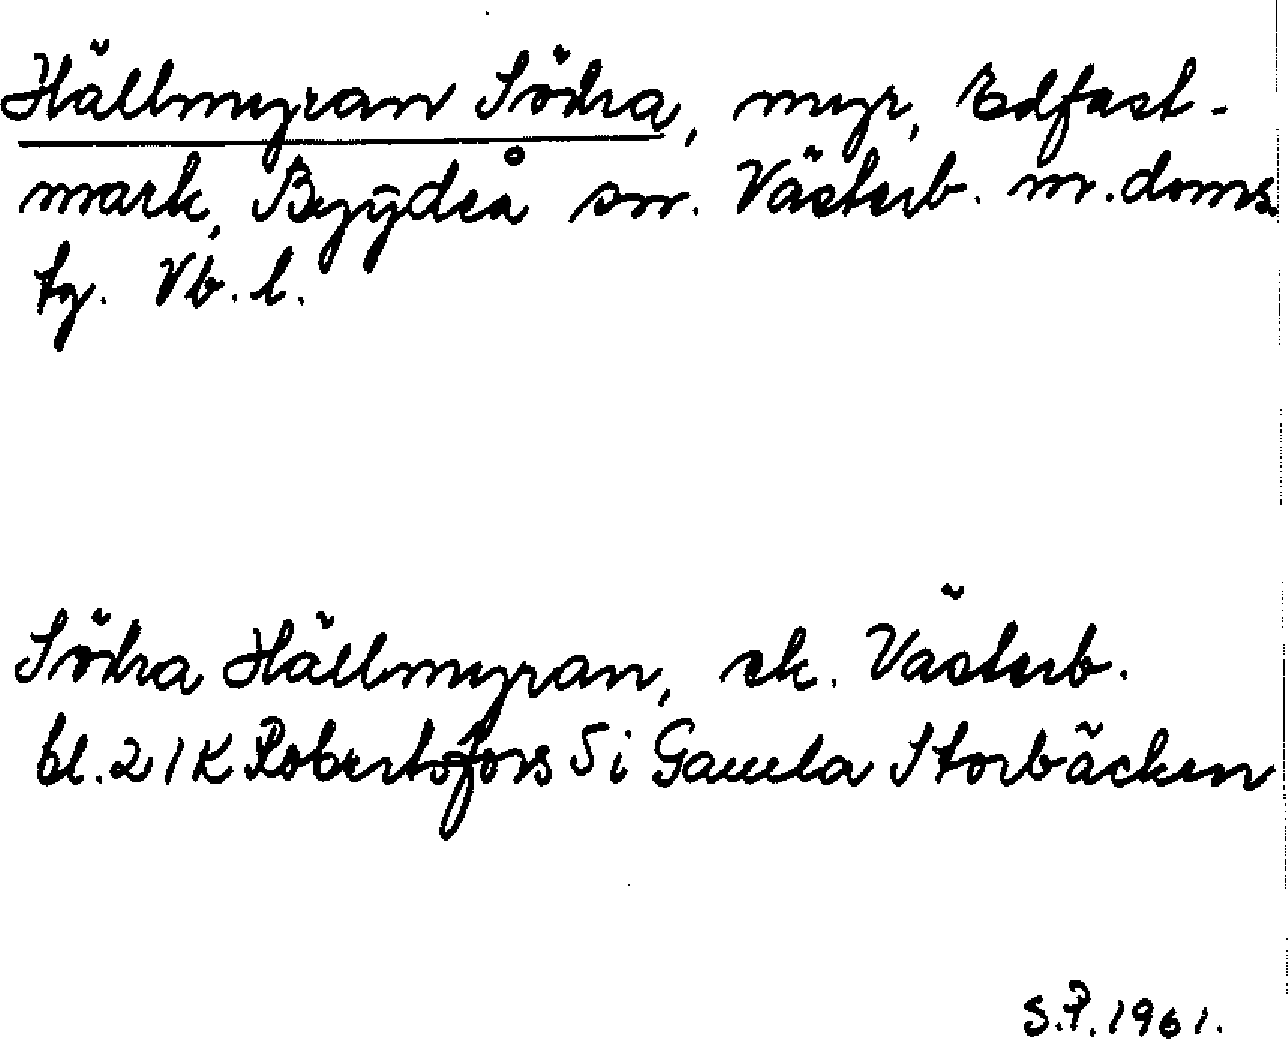 Hällmyran Södra, myr, Edfast-
mark, Bygdeå sn. Västerb. n. doms.
tg. Vb. l.
Södra Hällmyran, ek. Västerb.
bl. 21K Robertsfors 5i Gamla Storbäcken
S.P. 1961.